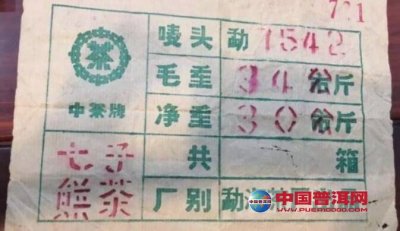 721
唛头 勐 7542
毛重 34 公斤
中茶牌
净重 30 公斤
七子
饼茶
共 箱
厂别 勐海
中国普洱网
WWW.PUERWOOD.COM